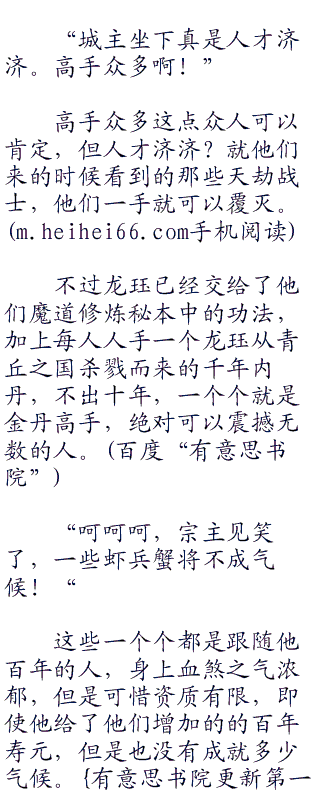 “城主坐下真是人才济
济。高手众多啊！”
高手众多这点众人可以
肯定，但人才济济？就他们
来的时候看到的那些天劫战
士，他们一手就可以覆灭。
(m.heihei66.com手机阅读)
不过龙珏已经交给了他
们魔道修炼秘本中的功法，
加上每人人手一个龙珏从青
丘之国杀戮而来的千年内
丹，不出十年，一个个就是
金丹高手，绝对可以震撼无
数的人。(百度“有意思书
院”)
“呵呵呵，宗主见笑
了，一些虾兵蟹将不成气
候！“
这些一个个都是跟随他
百年的人，身上血煞之气浓
郁，但是可惜资质有限，即
使他给了他们增加的的百年
寿元，但是也没有成就多少
气候。{有意思书院更新第一